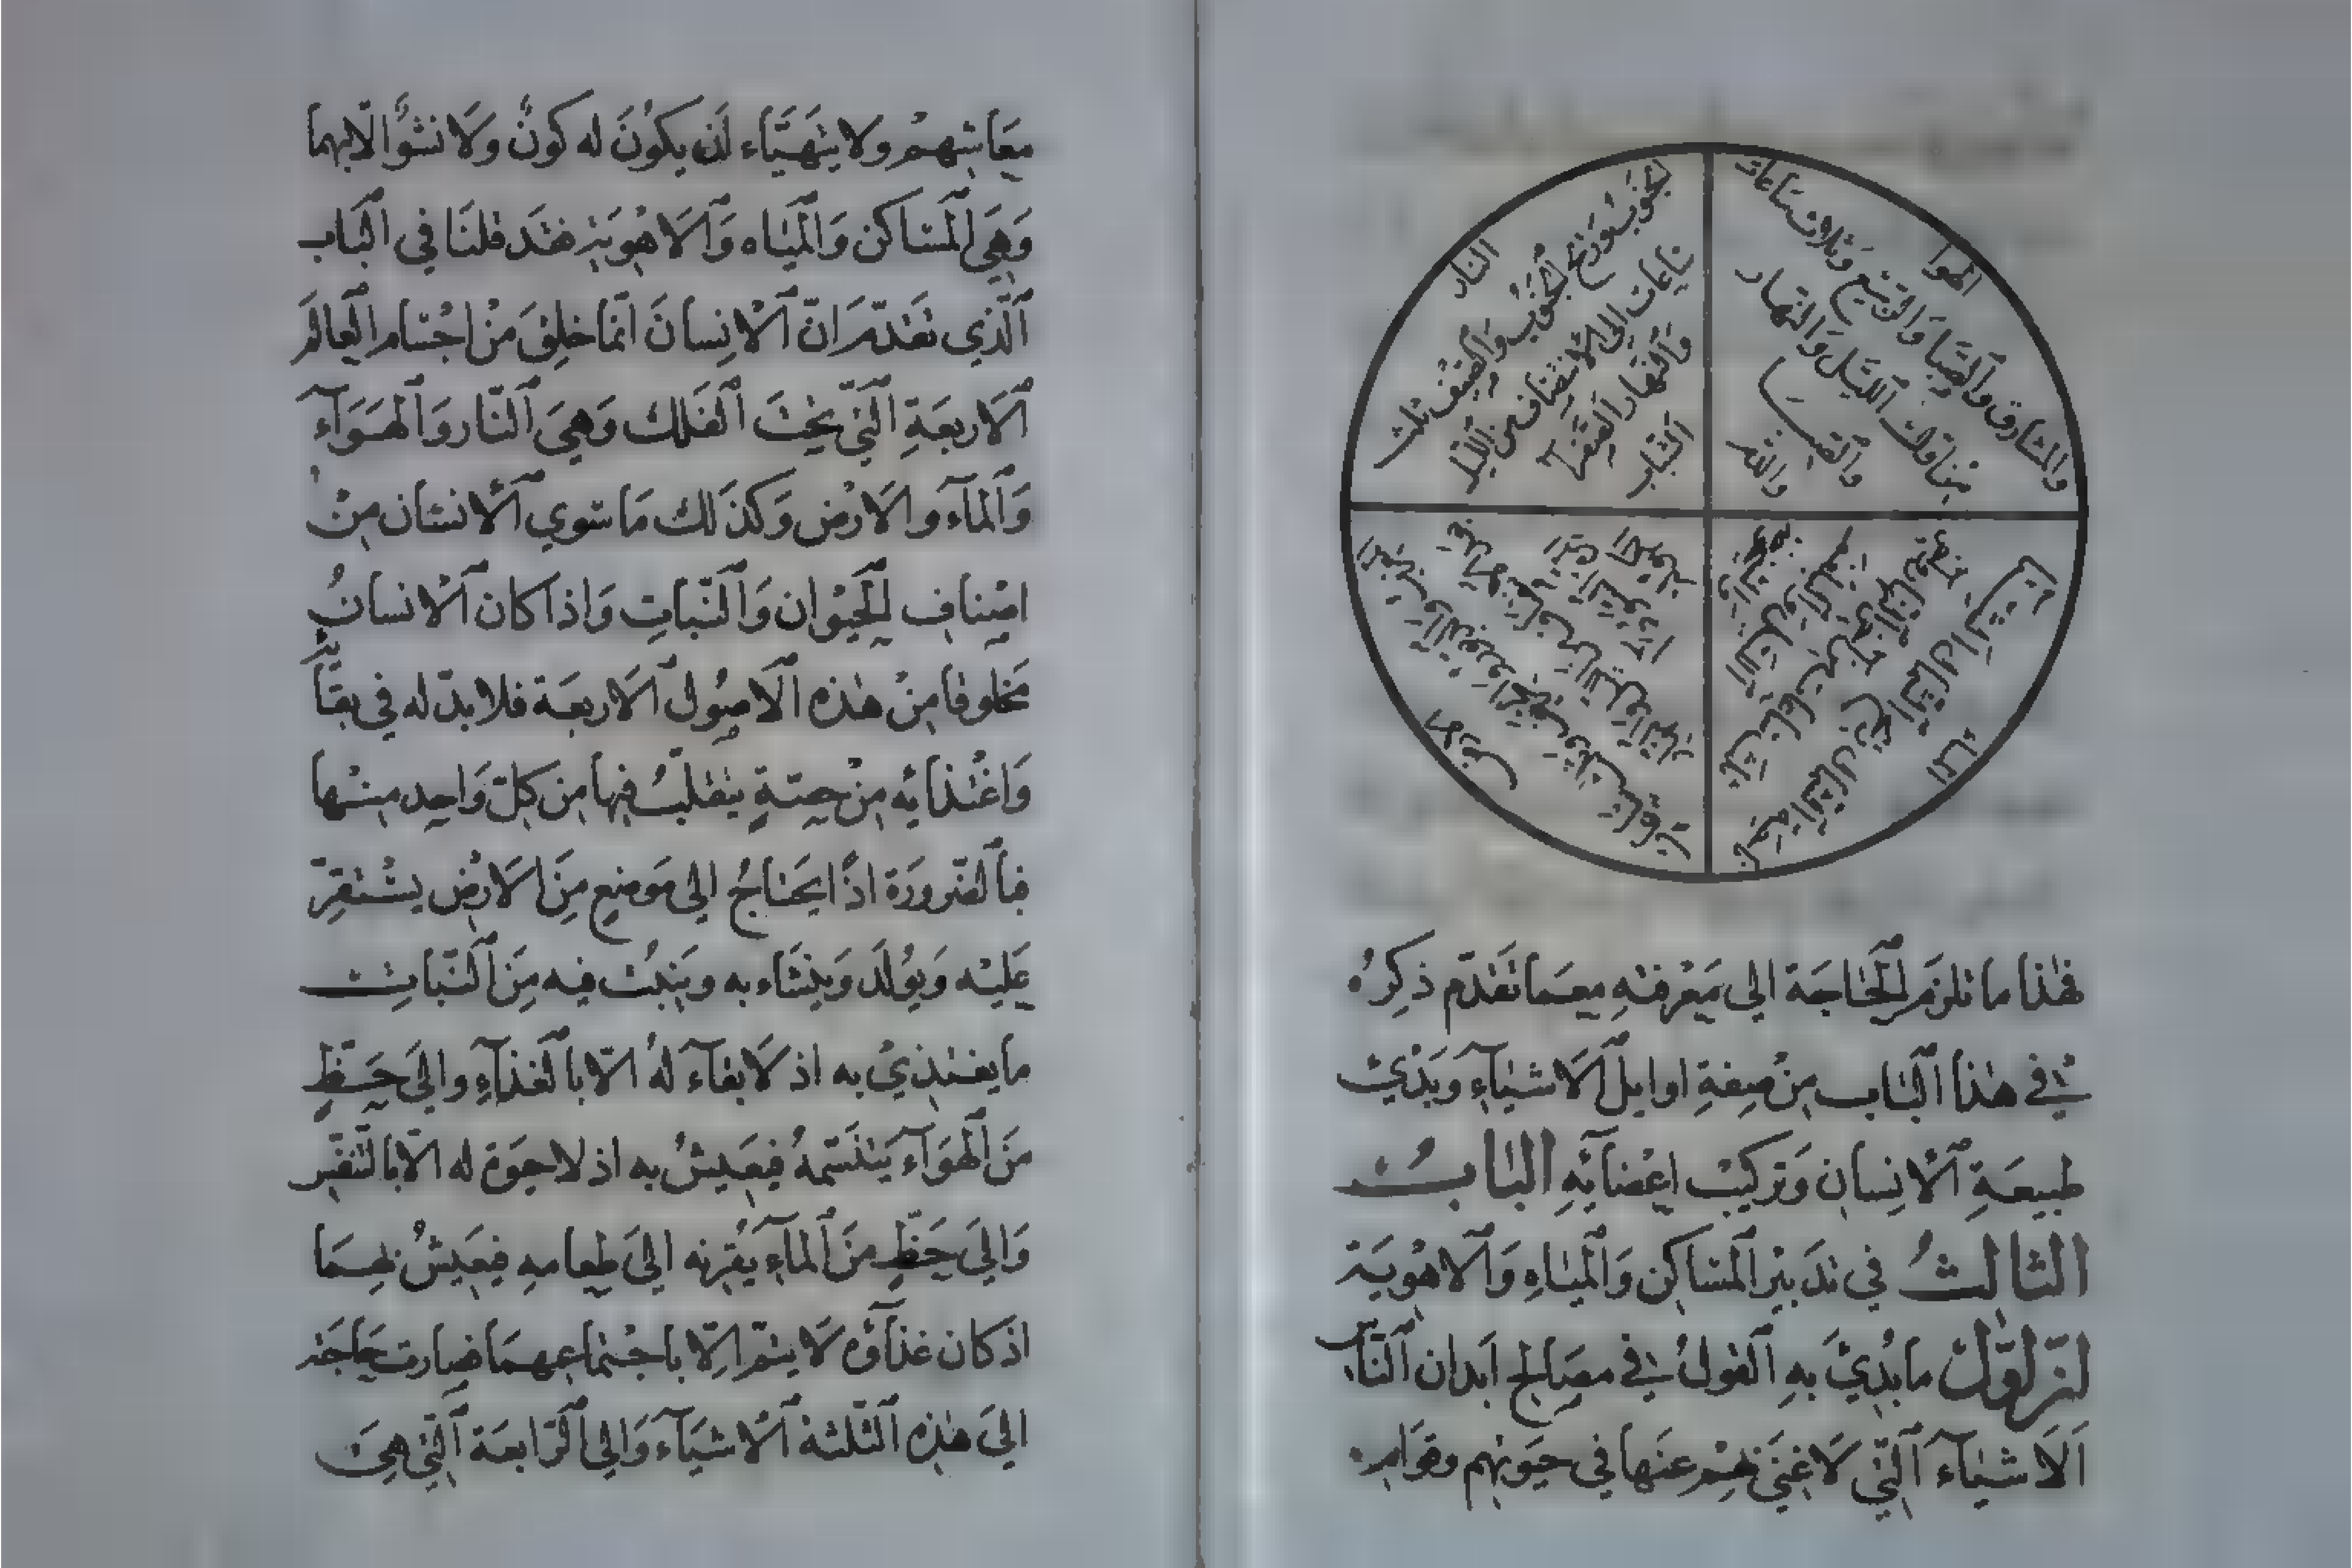 الهوا
وثلاث ساعات
والمشارق والصبا والربيع
من اوقات الليل والنهار
والدم
النار
الجنوب وريح الجنوب والصيف وثلث
ساعات الى الانتصاف من الليل
والنهار الصفرا
الشباب
الماء
الارض
فهذا ما تلزم الحاجة الى معرفته معما تقدم ذكره
في هذا الباب من صفة اوايل الاشياء وبدئ
طبيعة الانسان وتركيب اعضائه الباب
الثالث في تدبير المساكن والمياه والاهوية
ان اول ما بدئ به القول في مصالح ابدان الناس
الاشياء التي لا غنى بهم عنها في حيوتهم وقوام
معاشهم ولا يتهياء لن يكون له كون ولا نشؤ الا بهما
وهي المساكن والمياه والاهوية فقد قلنا في الباب
الذي تقدم ان الانسان انما خلق من اجسام العالم
الاربعة التي تحت الفلك وهي النار والهوآء
والمآء والارض وكذلك ما سوي الانسان من
اصناف الحيوان والنبات واذا كان الانسان
مخلوقا من هذه الاصول الاربعة فلا بد له في بقائه
واغتذايه من حصة يتقلب فيها من كل واحد منها
فبالضرورة اذا يحتاج الى موضع من الارض يستقر
عليه ويولد وينشاء به وينبت فيه من النبات
ما يغتذي به اذ لا بقآء له الا بالغذآء والى حظ
من الهوآء يتنسمه فيعيش به اذ لا حيوة له الا بالتنفس
والى حظ من المآء يقرنه الى طعامه فيعيش بهما
اذ كان غذآؤه لا يتم الا باجتماعهما فصارت حاجته
الى هذه الثلثة الاشيآء والى الرابعة التي هي